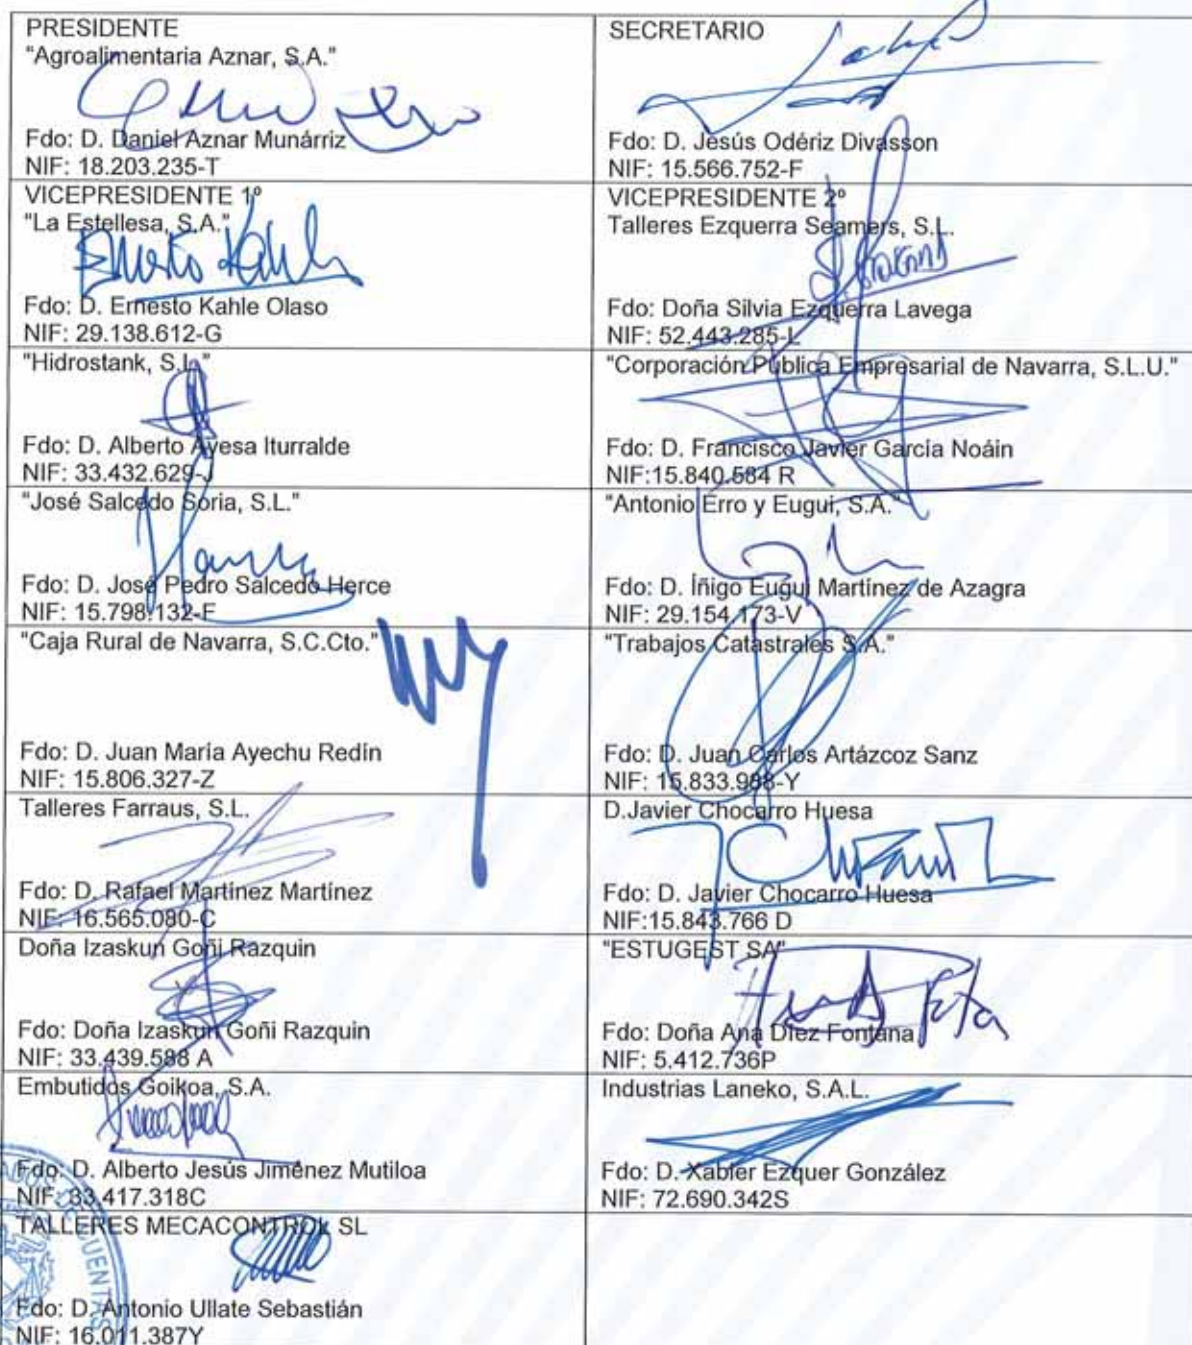 PRESIDENTE
"Agroalimentaria Aznar, S.A."
Fdo: D. Daniel Aznar Munárriz
NIF: 18.203.235-T
SECRETARIO
Fdo: D. Jesús Odériz Divasson
NIF: 15.566.752-F
VICEPRESIDENTE 1º
"La Estellesa, S.A."
Ernesto Kahle
Fdo: D. Ernesto Kahle Olaso
NIF: 29.138.612-G
VICEPRESIDENTE 2º
Talleres Ezquerra Seamers, S.L.
Fdo: Doña Silvia Ezquerra Lavega
NIF: 52.443.285-L
"Hidrostank, S.L."
Fdo: D. Alberto Ayesa Iturralde
NIF: 33.432.629-J
"Corporación Pública Empresarial de Navarra, S.L.U."
Fdo: D. Francisco Javier García Noáin
NIF:15.840.584 R
"José Salcedo Soria, S.L."
Fdo: D. José Pedro Salcedo Herce
NIF: 15.798.132-F
"Antonio Erro y Eugui, S.A."
Fdo: D. Íñigo Eugui Martínez de Azagra
NIF: 29.154.173-V
"Caja Rural de Navarra, S.C.Cto."
Fdo: D. Juan María Ayechu Redín
NIF: 15.806.327-Z
"Trabajos Catastrales S.A."
Fdo: D. Juan Carlos Artázcoz Sanz
NIF: 15.833.988-Y
Talleres Farraus, S.L.
Fdo: D. Rafael Martínez Martínez
NIF: 16.565.080-C
D.Javier Chocarro Huesa
Fdo: D. Javier Chocarro Huesa
NIF:15.843.766 D
Doña Izaskun Goñi Razquin
Fdo: Doña Izaskun Goñi Razquin
NIF: 33.439.588 A
"ESTUGEST SA"
Fdo: Doña Ana Díez Fontana
NIF: 5.412.736P
Embutidos Goikoa, S.A.
Fdo: D. Alberto Jesús Jiménez Mutiloa
NIF: 33.417.318C
Industrias Laneko, S.A.L.
Fdo: D. Xabier Ezquer González
NIF: 72.690.342S
TALLERES MECACONTROL SL
Fdo: D. Antonio Ullate Sebastián
NIF: 16.011.387Y
DE CUENTAS